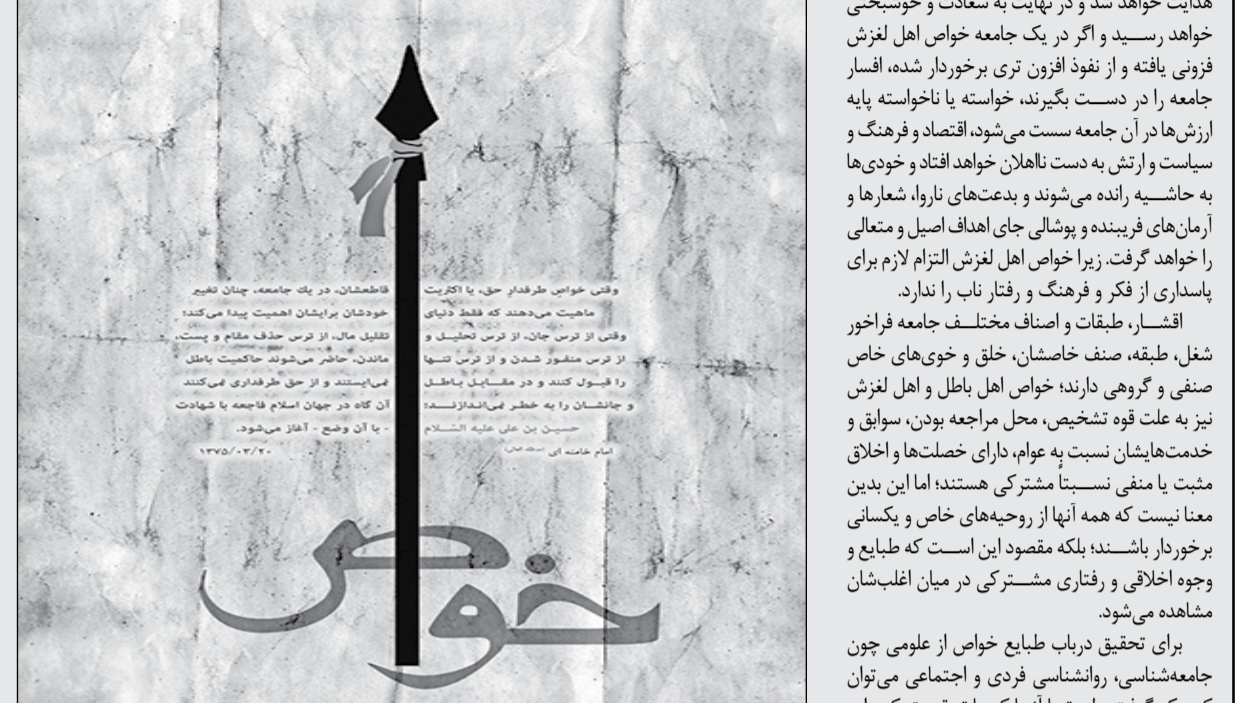 هدایت خواهد شد و در نهایت به سعادت و خوشبختی
خواهد رسید و اگر در یک جامعه خواص اهل لغزش
فزونی یافته و از نفوذ افزون تری برخوردار شده، افسار
جامعه را در دست بگیرند، خواسته یا ناخواسته پایه
ارزش‌ها در آن جامعه سست می‌شود، اقتصاد و فرهنگ و
سیاست و ارتش به دست نااهلان خواهد افتاد و خودی‌ها
به حاشیه رانده می‌شوند و بدعت‌های ناروا، شعارها و
آرمان‌های فریبنده و پوشالی جای اهداف اصیل و متعالی
را خواهد گرفت. زیرا خواص اهل لغزش التزام لازم برای
پاسداری از فکر و فرهنگ و رفتار ناب را ندارد.
اقشار، طبقات و اصناف مختلف جامعه فراخور
شغل، طبقه، صنف خاصشان، خلق و خوی‌های خاص
صنفی و گروهی دارند؛ خواص اهل باطل و اهل لغزش
نیز به علت قوه تشخیص، محل مراجعه بودن، سوابق و
خدمت‌هایشان نسبت به عوام، دارای خصلت‌ها و اخلاق
مثبت یا منفی نسبتاً مشترکی هستند؛ اما این بدین
معنا نیست که همه آنها از روحیه‌های خاص و یکسانی
برخوردار باشند؛ بلکه مقصود این است که طبایع و
وجوه اخلاقی و رفتاری مشترکی در میان اغلب‌شان
مشاهده می‌شود.
برای تحقیق درباب طبایع خواص از علومی چون
جامعه‌شناسی، روانشناسی فردی و اجتماعی می‌توان
وقتی خواصِ طرفدارِ حق، یا اکثریت قاطعشان، در یك جامعه، چنان تغییر
ماهیت می‌دهند که فقط دنیای خودشان برایشان اهمیت پیدا می‌کند؛
وقتی از ترس جان، از ترس تحلیل و تقلیل مال، از ترس حذف مقام و پست،
از ترس منفور شدن و از ترس تنها ماندن، حاضر می‌شوند حاکمیت باطل
را قبول کنند و در مقابل باطل نمی‌ایستند و از حق طرفداری نمی‌کنند
و جانشان را به خطر نمی‌اندازند؛ آن گاه در جهان اسلام فاجعه با شهادت
حسین بن علی علیه السّلام - با آن وضع - آغاز می‌شود.
امام خامنه ای ۱۳۷۵/۰۳/۲۰
خواص